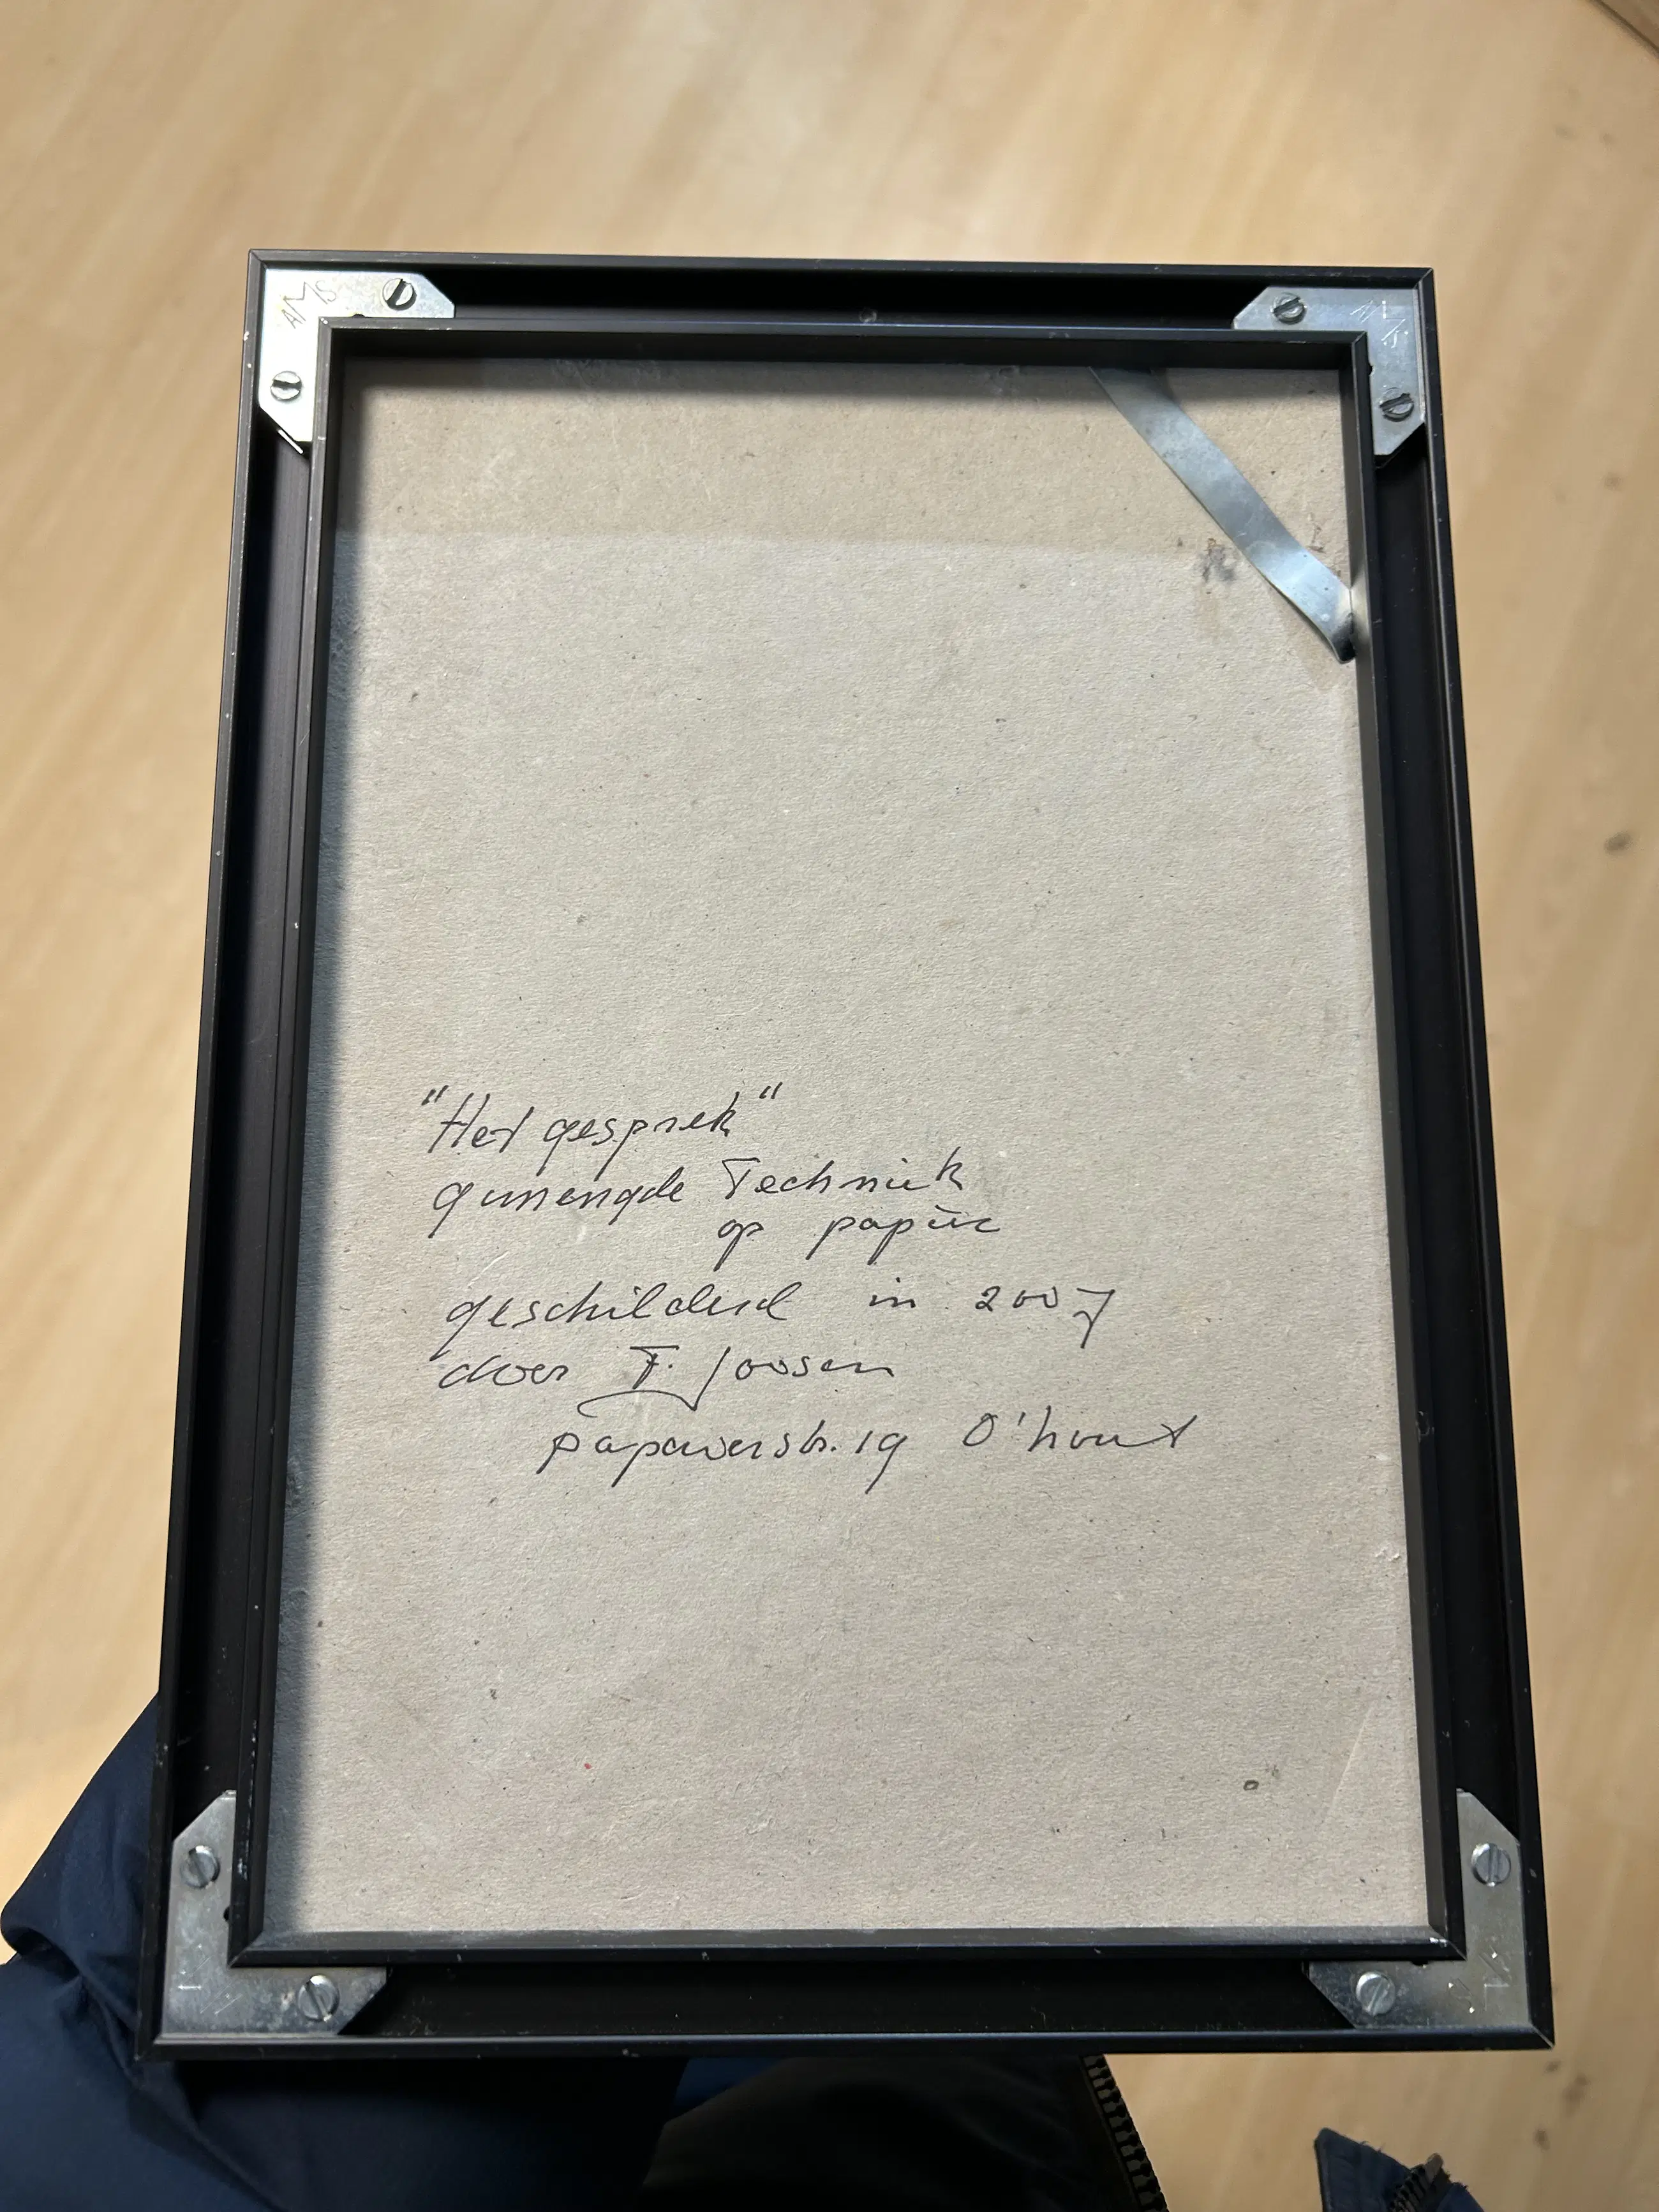 AMS
"Het gesprek"
gemengde Techniek
op papier
geschilderd in 2007
door F. Joosen
papaverstr. 19 O'hout